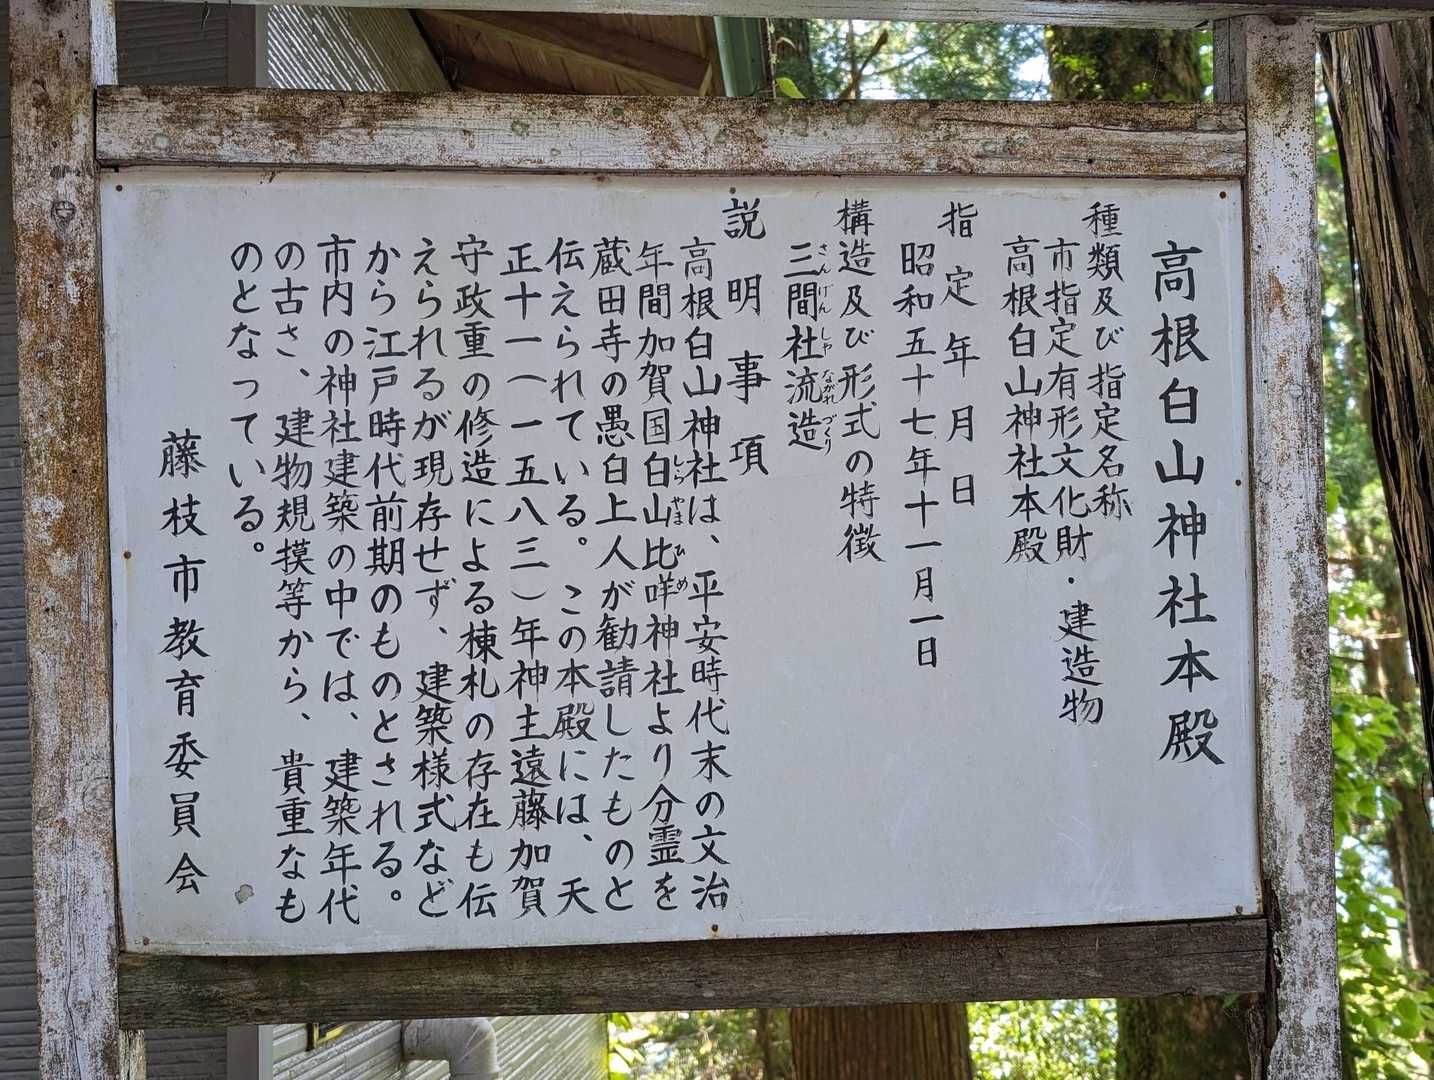 高根白山神社本殿
種類及び指定名称
市指定有形文化財・建造物
高根白山神社本殿
指定年月日
昭和五十七年十一月一日
構造及び形式の特徴
三間社流造
さんげんしゃながれづくり
説明事項
高根白山神社は、平安時代末の文治
年間加賀国白山比咩神社より分霊を
しらやまひめ
蔵田寺の愚白上人が勧請したものと
伝えられている。この本殿には、天
正十一（一五八三）年神主遠藤加賀
守政重の修造による棟札の存在も伝
えられるが現存せず、建築様式など
から江戸時代前期のものとされる。
市内の神社建築の中では、建築年代
の古さ、建物規摸等から、貴重なも
のとなっている。
藤枝市教育委員会